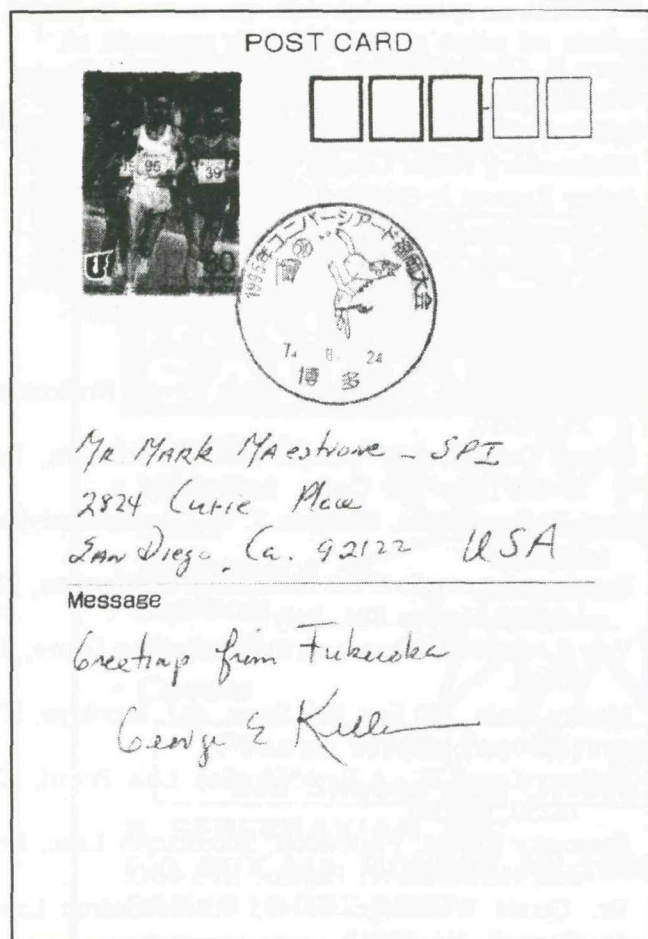 POST CARD
96
39
80
1995年ユニバーシアード福岡大会
7. 8. 24
博多
Mr MARK MAestrone - SPI
2824 Curie Place
SAN Diego, Ca. 92122 USA
Message
Greetings from Fukuoka
George E Killian